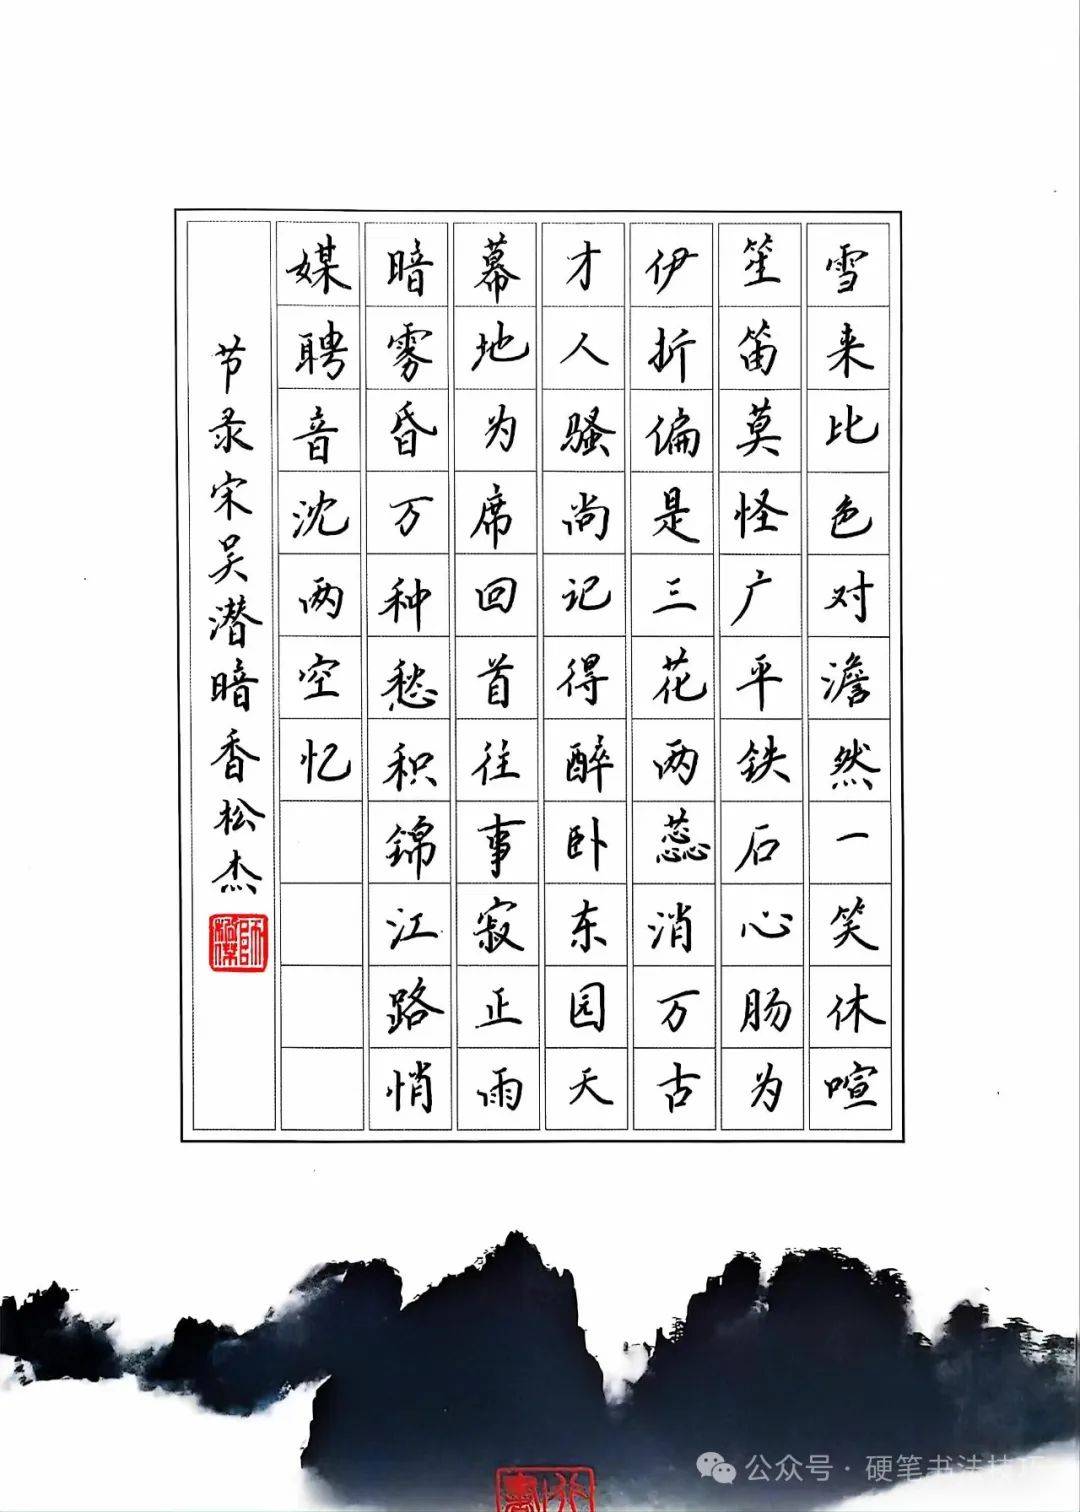 雪来比色对澹然一笑休喧
笙笛莫怪广平铁石心肠为
伊折偏是三花两蕊消万古
才人骚尚记得醉卧东园天
幕地为席回首往事寂正雨
暗雾昏万种愁积锦江路悄
媒聘音沈两空忆
节录宋吴潜暗香松杰
公众号·硬笔书法技